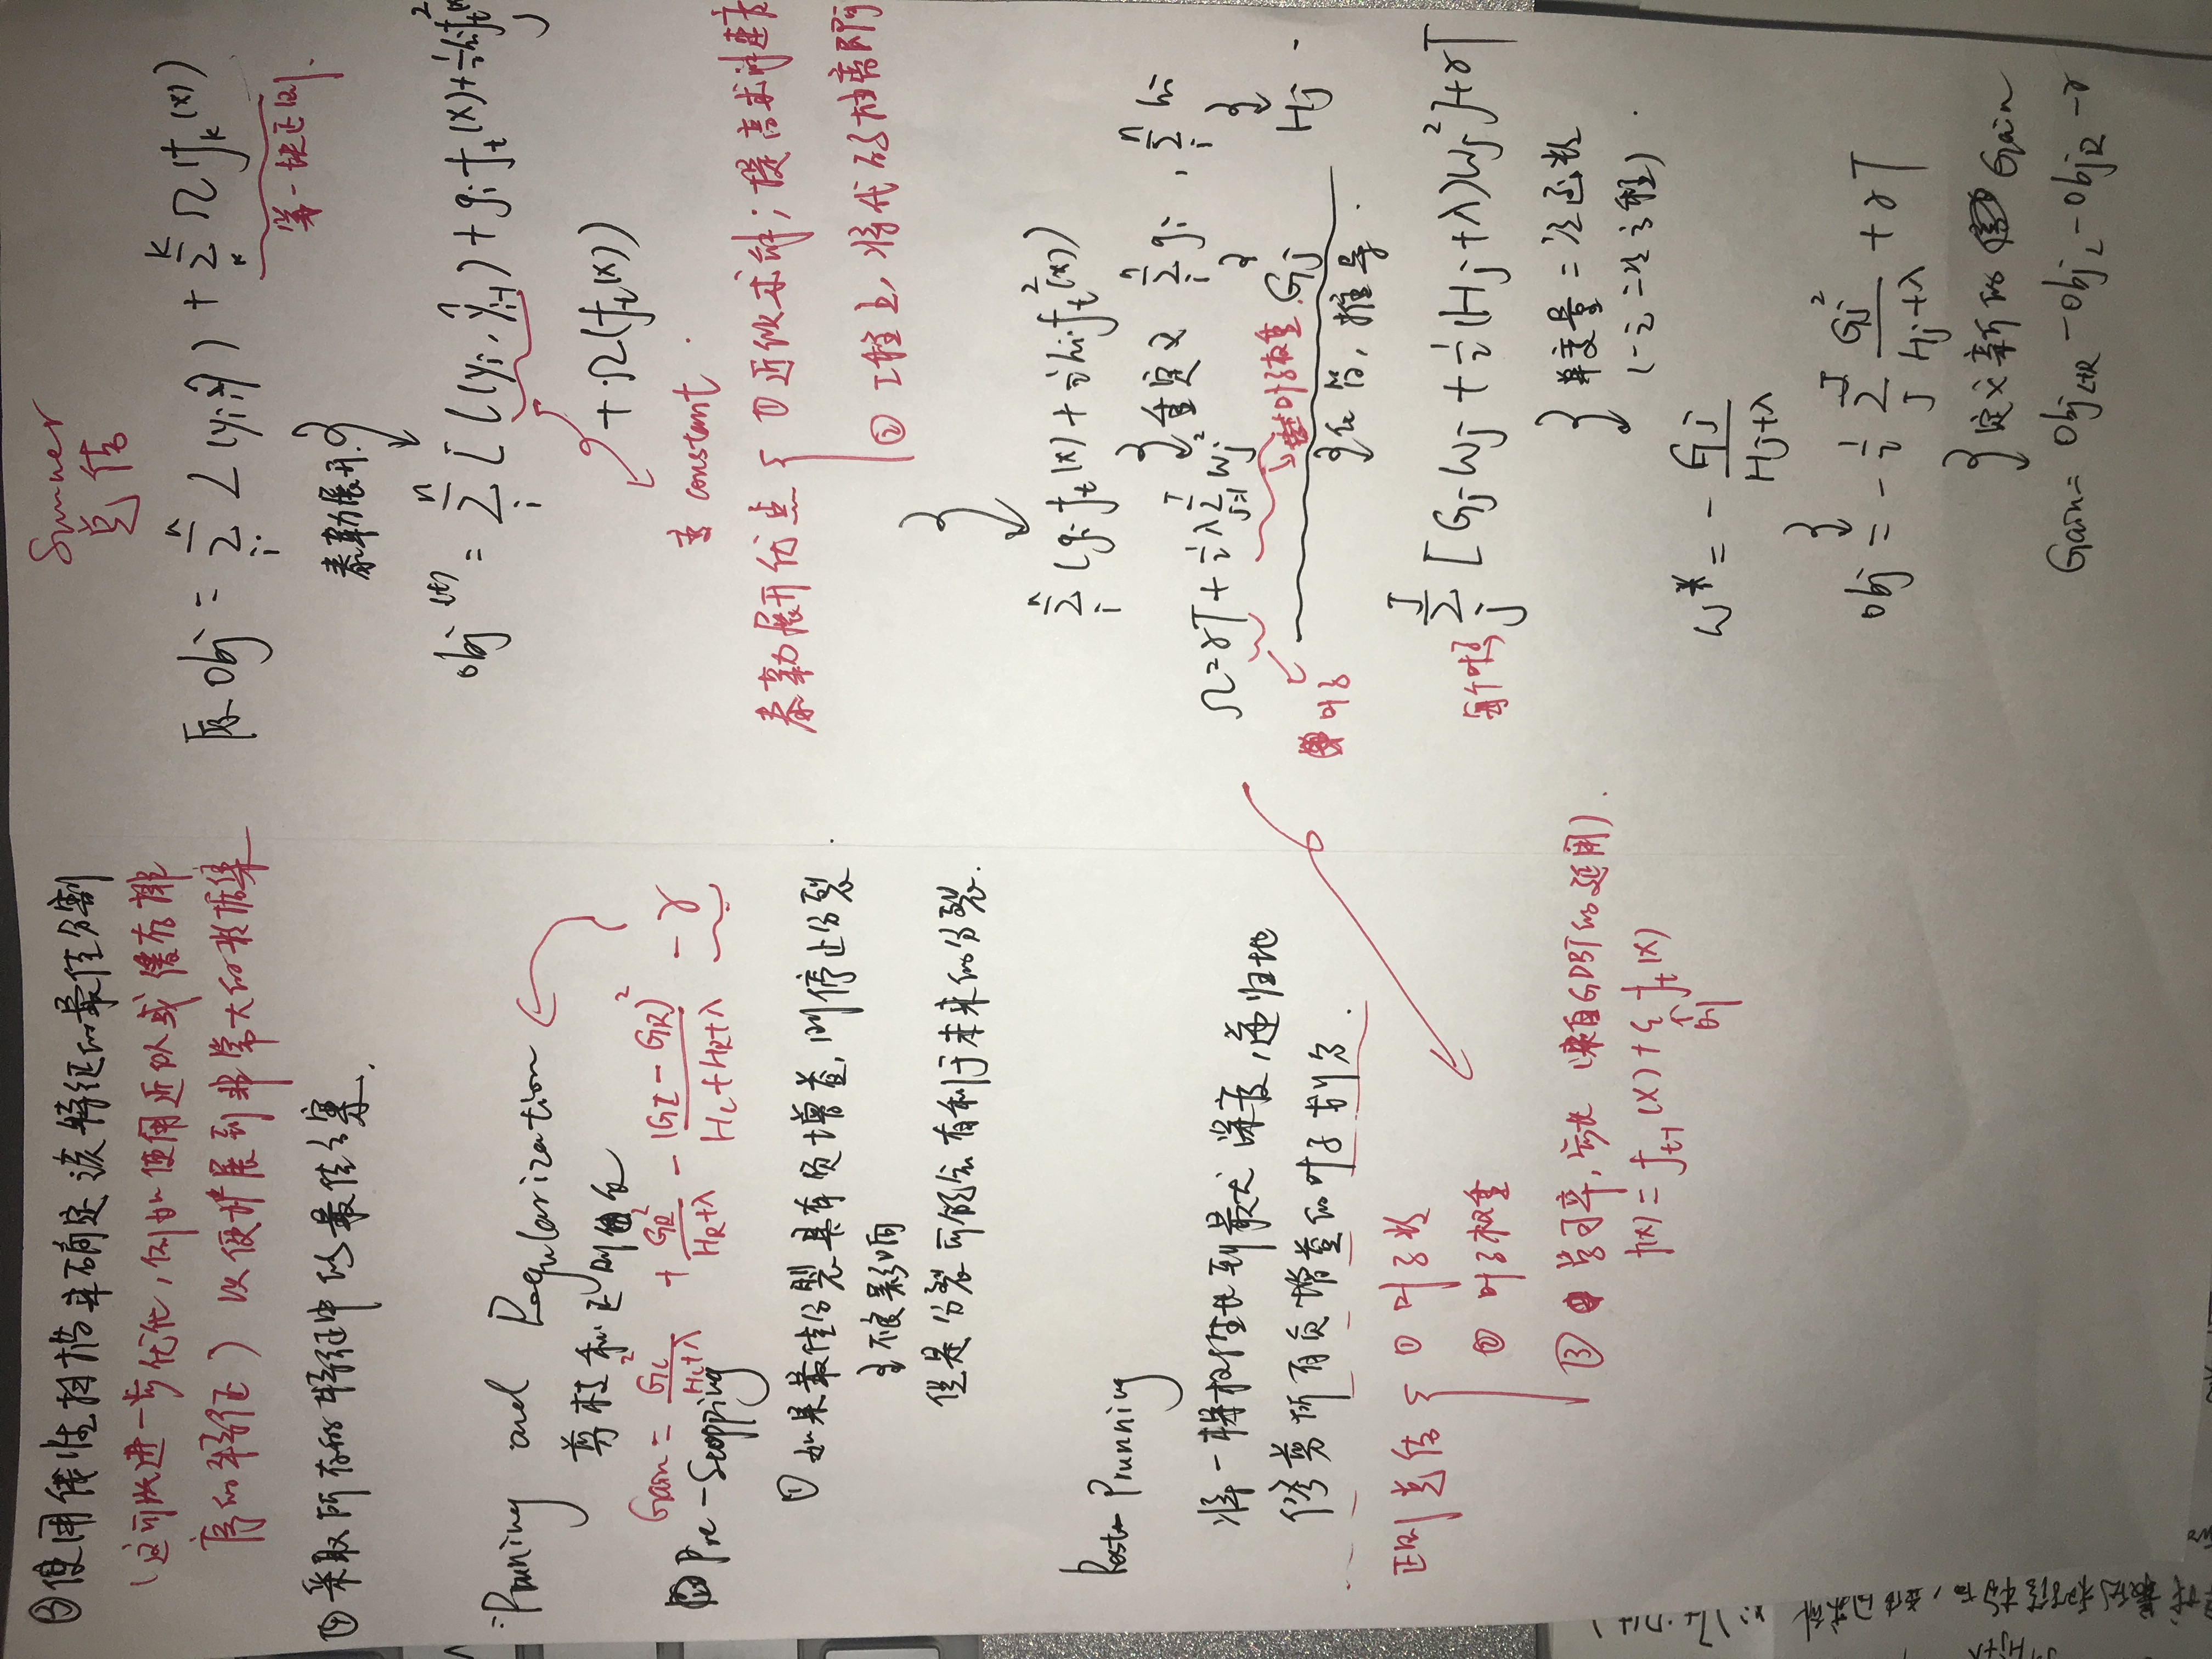 ③使用线性扫描来确定该特征的最佳分割
(这可以进一步优化,例如使用近似或储存排
序的特征)以便扩展到非常大的数据集
④采取所有的特征中的最佳方案.
Prunning and Regularization
剪枝和正则化
Gain = GL²/(HL+λ) + GR²/(HR+λ) - (GL-GR)²/(HL+HR+λ) - γ
Pre-Stopping
① 如果最佳分裂具有负增益,则停止分裂.
但是分裂可能会有利于未来的分裂.
Post-Prunning
将一棵树生长到最大深度,递归地
修剪所有负增益的叶子划分.
正则总结
① 叶子数
② 叶子权重
③ 学习率, (来自GDBT的延用).
f(x) = f_{t-1}(x) + ε f_t(x)
Summer
总结
原 Obj = Σ_i^n L(yi, ŷ) + Σ_k^K Ω(f_k(x))
第一块正则.
泰勒展开.
obj^(t) = Σ_i^n [l(yi, ŷ_{i-1}) + gi f_t(x) + ½hi f_t²(x)
+ Ω(f_t(x))
constant.
泰勒展开优点
① 近似求解; 提高求解速度
② 工程上, 将代码抽离即可
Σ_i^n (gi f_t(x) + ½hi f_t²(x))
重定义 Σ_i^n gi , Σ_i^n hi
Ω = γT + ½λ Σ_{j=1}^T wj²
叶子
叶子权重
Gj
Hj.
化简, 推导.
每个叶子 Σ_j^J [Gj Wj + ½(Hj+λ)Wj²] + γT
单变量二次函数
(一元二次方程).
w* = - Gj/(Hj+λ)
obj = -½ Σ_J^J Gj²/(Hj+λ) + γT
定义新的 Gain
Gain = Obj_{L+R} - Obj_L - Obj_R - γ